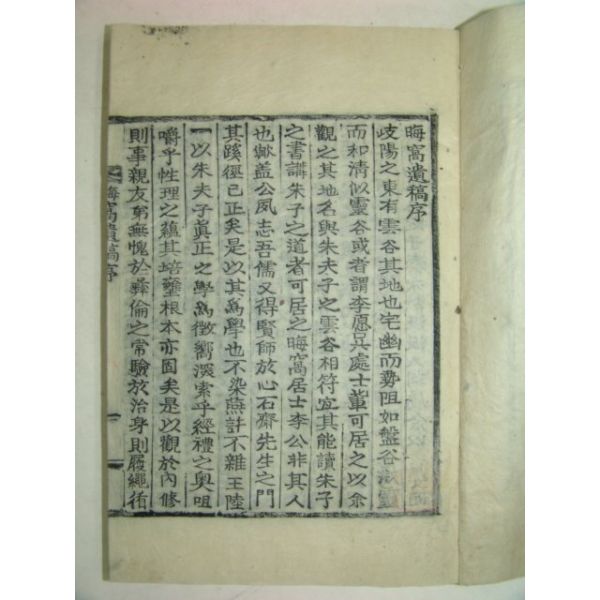 晦窩遺稿序
歧陽之東有雲谷其地也宅幽而勢阻如盤谷淑靈
而和清似靈谷或者謂李愿呉處士軰可居之以余
觀之其地名與朱夫子之雲谷相符宜其能讀朱子
之書講朱子之道者可居之晦窩居士李公非其人
也歟盖公夙志吾儒又得賢師放心石齋先生之門
其蹊徑已正矣是以其為學也不染燕許不雜王陸
一以朱夫子眞正之學為徴嚮深索乎經禮之奥咀
嚼乎性理之蘊其培壅根本亦固矣是以觀於内修
則事親友弟無愧於彛倫之常驗於治身則履繩循
晦窩遺稿序
一